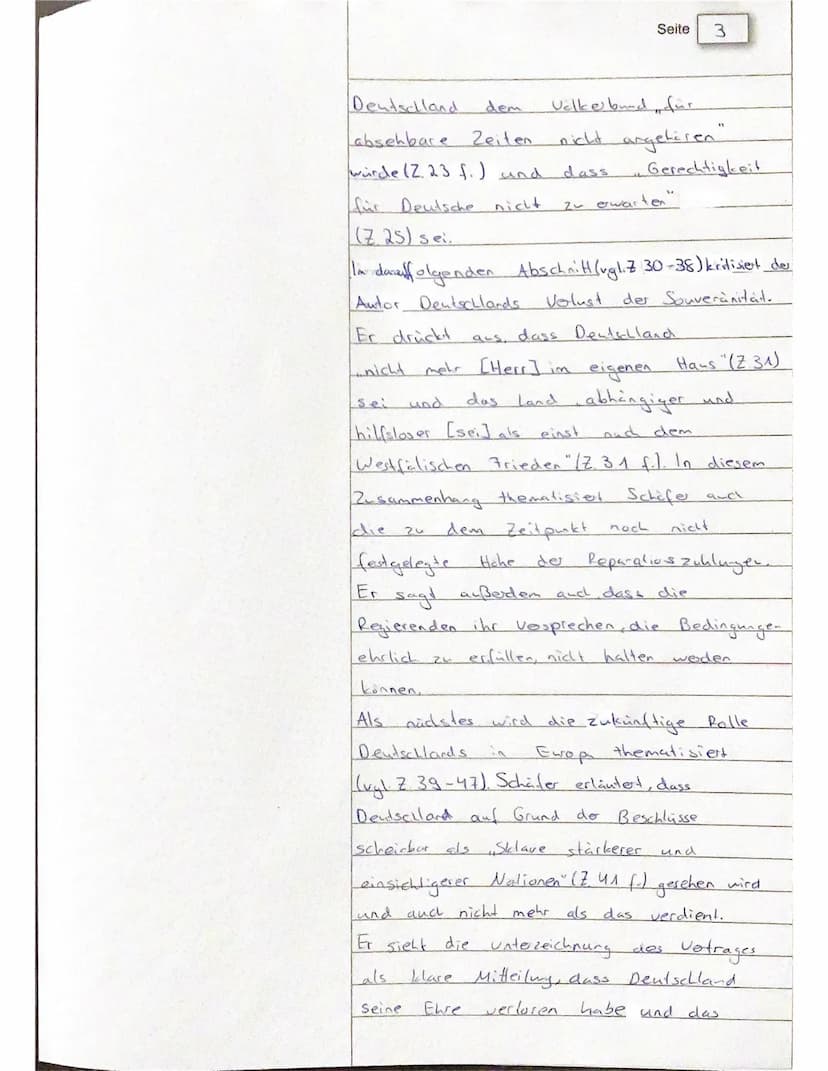 Seite 3
Deutschland dem Völkerbund „für
absehbare Zeiten nicht angehören"
würde (Z. 23 f.) und dass „Gerechtigkeit
für Deutsche nicht zu erwarten"
(Z. 25) sei.
Im darauffolgenden Abschnitt (vgl. Z 30-38) kritisiert der
Autor Deutschlands Verlust der Souveränität.
Er drückt aus, dass Deutschland
„nicht mehr [Herr] im eigenen Haus" (Z 31)
sei und das Land „abhängiger und
hilfsloser [sei] als einst nach dem
Westfälischen Frieden" (Z. 31 f.). In diesem
Zusammenhang thematisiert Schäfer auch
die zu dem Zeitpunkt noch nicht
festgelegte Höhe der Reparationszahlungen.
Er sagt außerdem auch, dass die
Regierenden ihr Versprechen, die Bedingungen
ehrlich zu erfüllen, nicht halten werden
können.
Als nächstes wird die zukünftige Rolle
Deutschlands in Europa thematisiert
(vgl Z 39-47). Schäfer erläutert, dass
Deutschland auf Grund der Beschlüsse
scheinbar als „Sklave stärkerer und
einsichtigerer Nationen" (Z. 41 f.) gesehen wird
und auch nicht mehr als das verdient.
Er sieht die Unterzeichnung des Vertrages
als klare Mitteilung, dass Deutschland
seine Ehre verloren habe und das